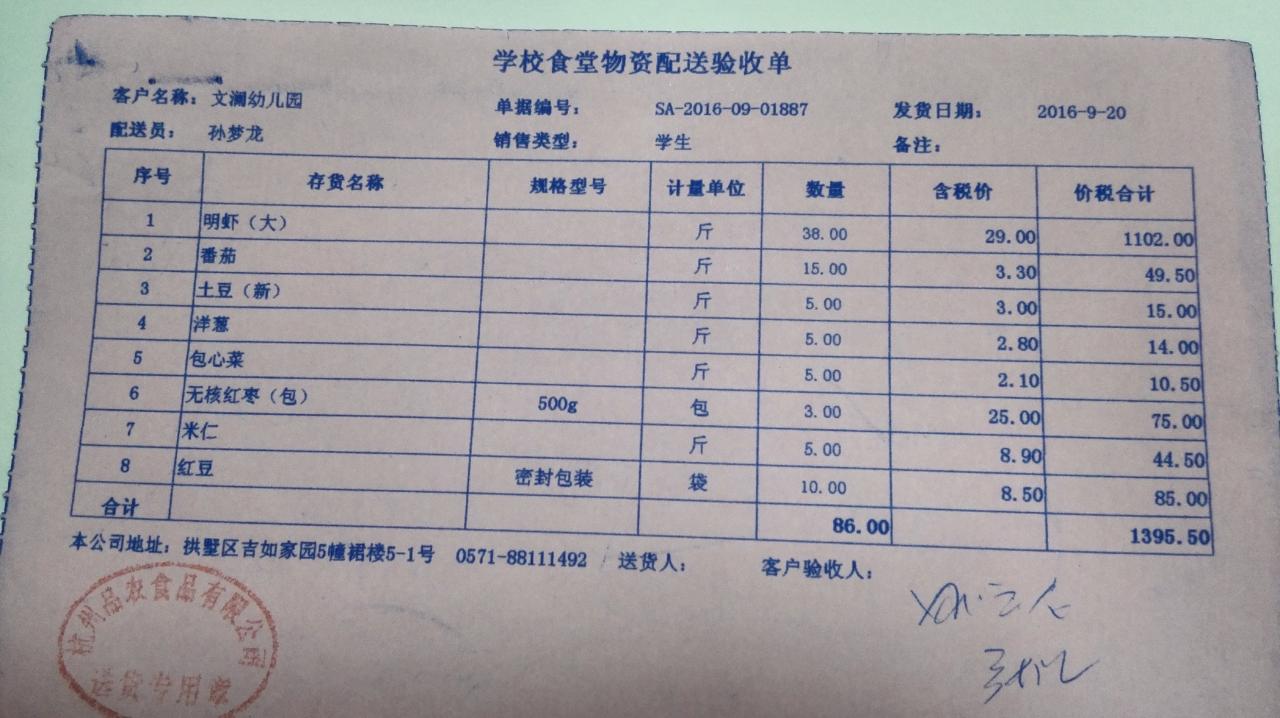 学校食堂物资配送验收单
客户名称：文澜幼儿园 单据编号： SA-2016-09-01887 发货日期： 2016-9-20
配送员： 孙梦龙 销售类型： 学生 备注：
序号 存货名称 规格型号 计量单位 数量 含税价 价税合计
1 明虾（大） 斤 38.00 29.00 1102.00
2 番茄 斤 15.00 3.30 49.50
3 土豆（新） 斤 5.00 3.00 15.00
4 洋葱 斤 5.00 2.80 14.00
5 包心菜 斤 5.00 2.10 10.50
6 无核红枣（包） 500g 包 3.00 25.00 75.00
7 米仁 斤 5.00 8.90 44.50
8 红豆 密封包装 袋 10.00 8.50 85.00
合计 86.00 1395.50
本公司地址：拱墅区吉如家园5幢裙楼5-1号 0571-88111492 送货人： 客户验收人：
杭州品农食品有限公司
送货专用章